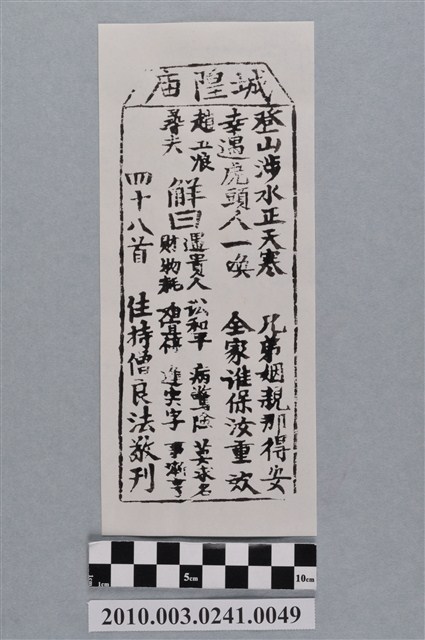 城隍庙
登山涉水正天寒 兄弟姻親那得安
幸遇虎頭人一喚 全家谁保汝重欢
趙五娘
尋夫
解曰
遇貴人 訟和平 病驚險 莫求名
財物耗 事漸亨
四十八首 住持僧良法敬刊
1cm 5cm 10cm
2010.003.0241.0049